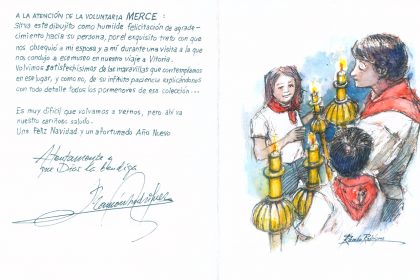 A LA ATENCIÓN DE LA VOLUNTARIA MERCE:
Sirva este dibujito como humilde felicitación de agrade-
cimiento hacia su persona, por el exquisito trato con que
nos obsequió a mi esposa y a mí durante una visita a la que
nos condujo a ese museo en nuestro viaje a Vitoria.
Volvimos satisfechísimos de las maravillas que contemplamos
en ese lugar, y como no, de su infinita paciencia explicándonos
con todo detalle todos los pormenores de esa colección...
Es muy difícil que volvamos a vernos, pero ahí va
nuestro cariñoso saludo.
Una Feliz Navidad y un afortunado Año Nuevo
Atentamente y
que Dios la bendiga